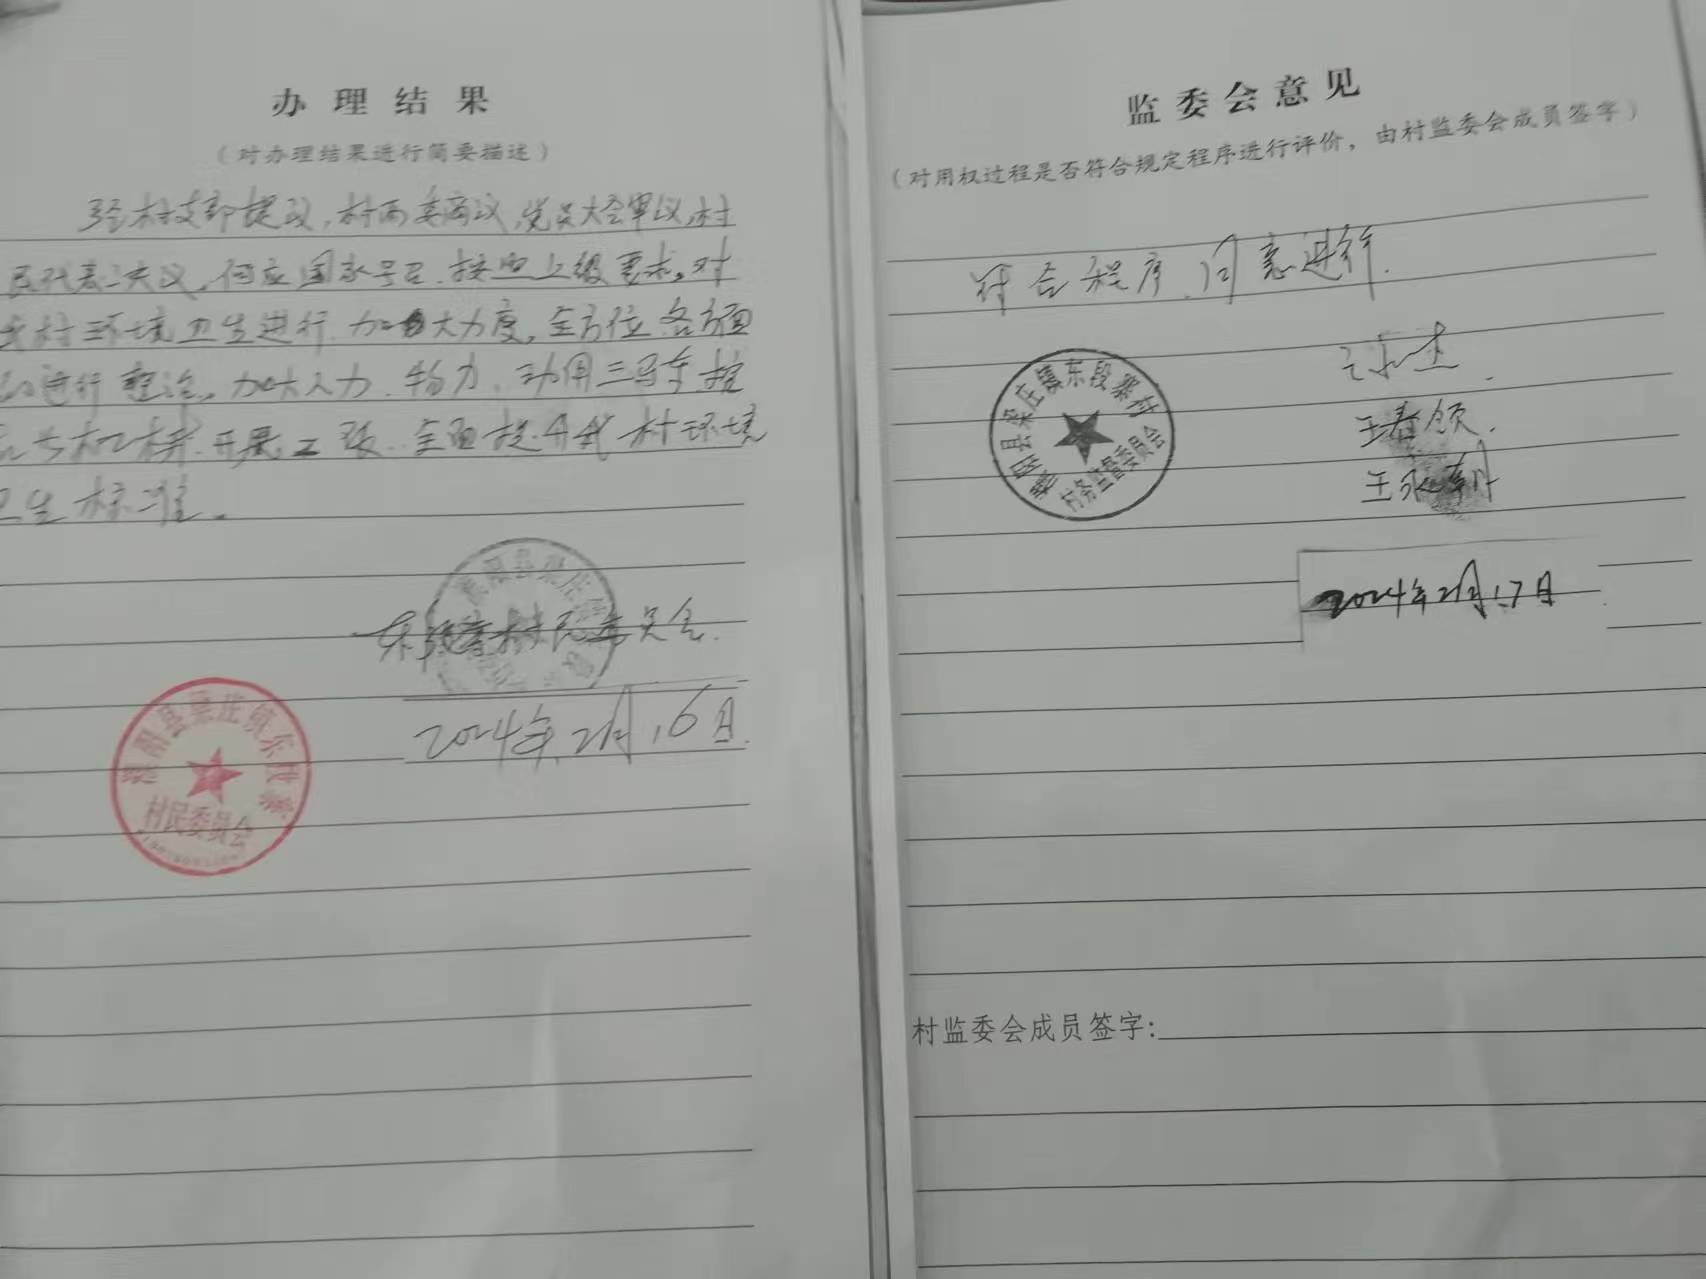 办理结果
（对办理结果进行简要描述）
经村支部提议，村两委商议，党员大会审议，村
民代表决议，响应国家号召，按照上级要求，对
我村环境卫生进行加大力度，全方位各方面
进行整治，加大人力、物力，动用三马车
开展工作，全面提升我村环境
卫生标准。
东段寨村民委员会
2024年2月16日
县梁庄镇东段寨
村民委员会
监委会意见
（对用权过程是否符合规定程序进行评价，由村监委会成员签字）
符合程序，同意进行.
县梁庄镇东段寨村
村务监督委员会
王春领
王永朝
2024年2月17日
村监委会成员签字: